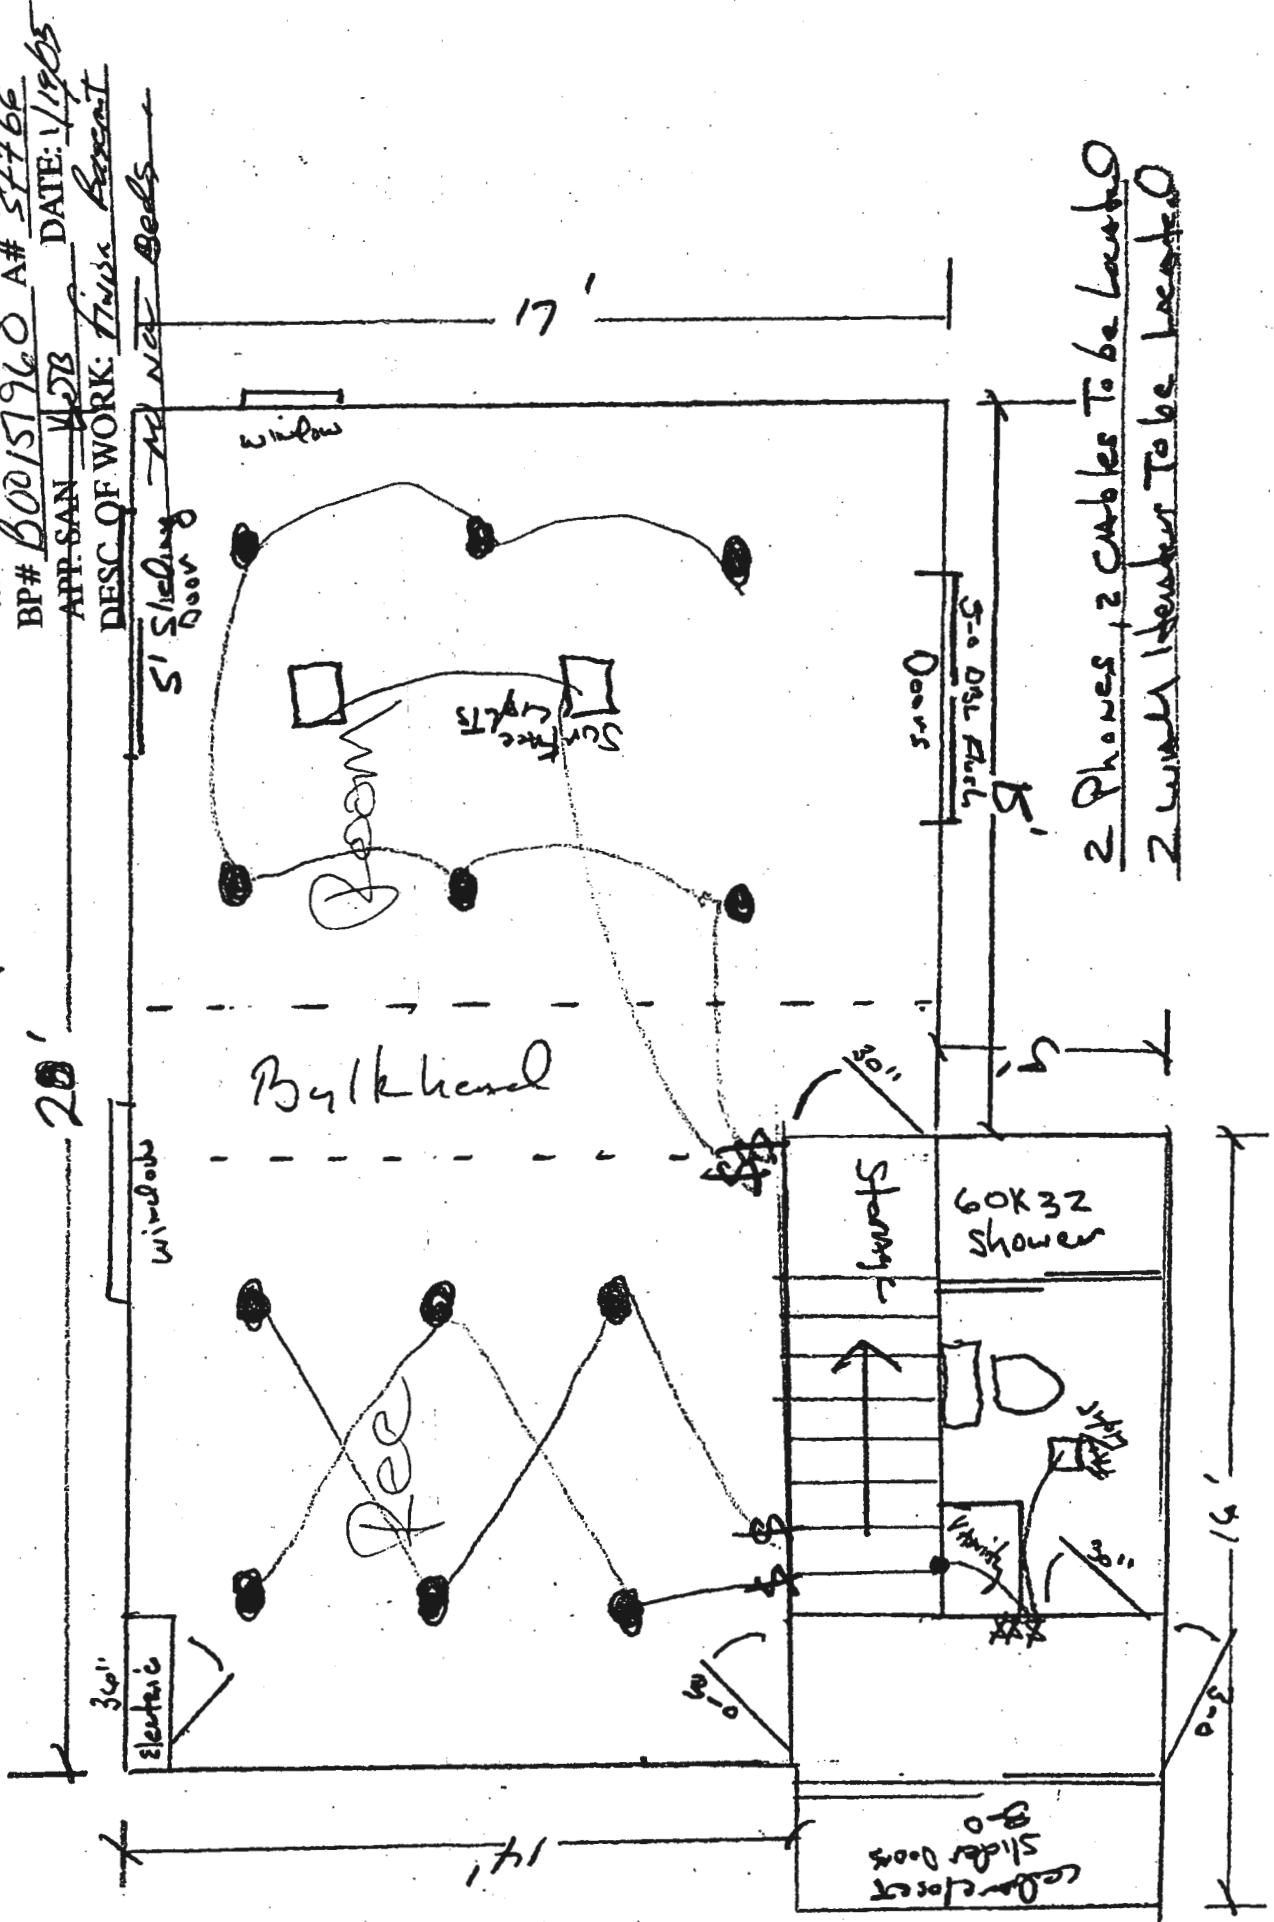 BP# B0015796.0 A#
APP. SAN WJB DATE: 1/19/05
DESC. OF WORK: Finish Basemt
No New Beds
28'
17'
window
5' Sliding
Door
Surface
Lights
Rec Room
5-0 DBL Flush
Doors
2 Phones, 2 Cables To be Located
2 wall Heaters To be Located
Bulkhead
window
30"
5'
Stairway
60X32
Shower
Vanity
30"
16'
34"
Electric
3-0
3-0
14'
Cedar closet
Slider Doors